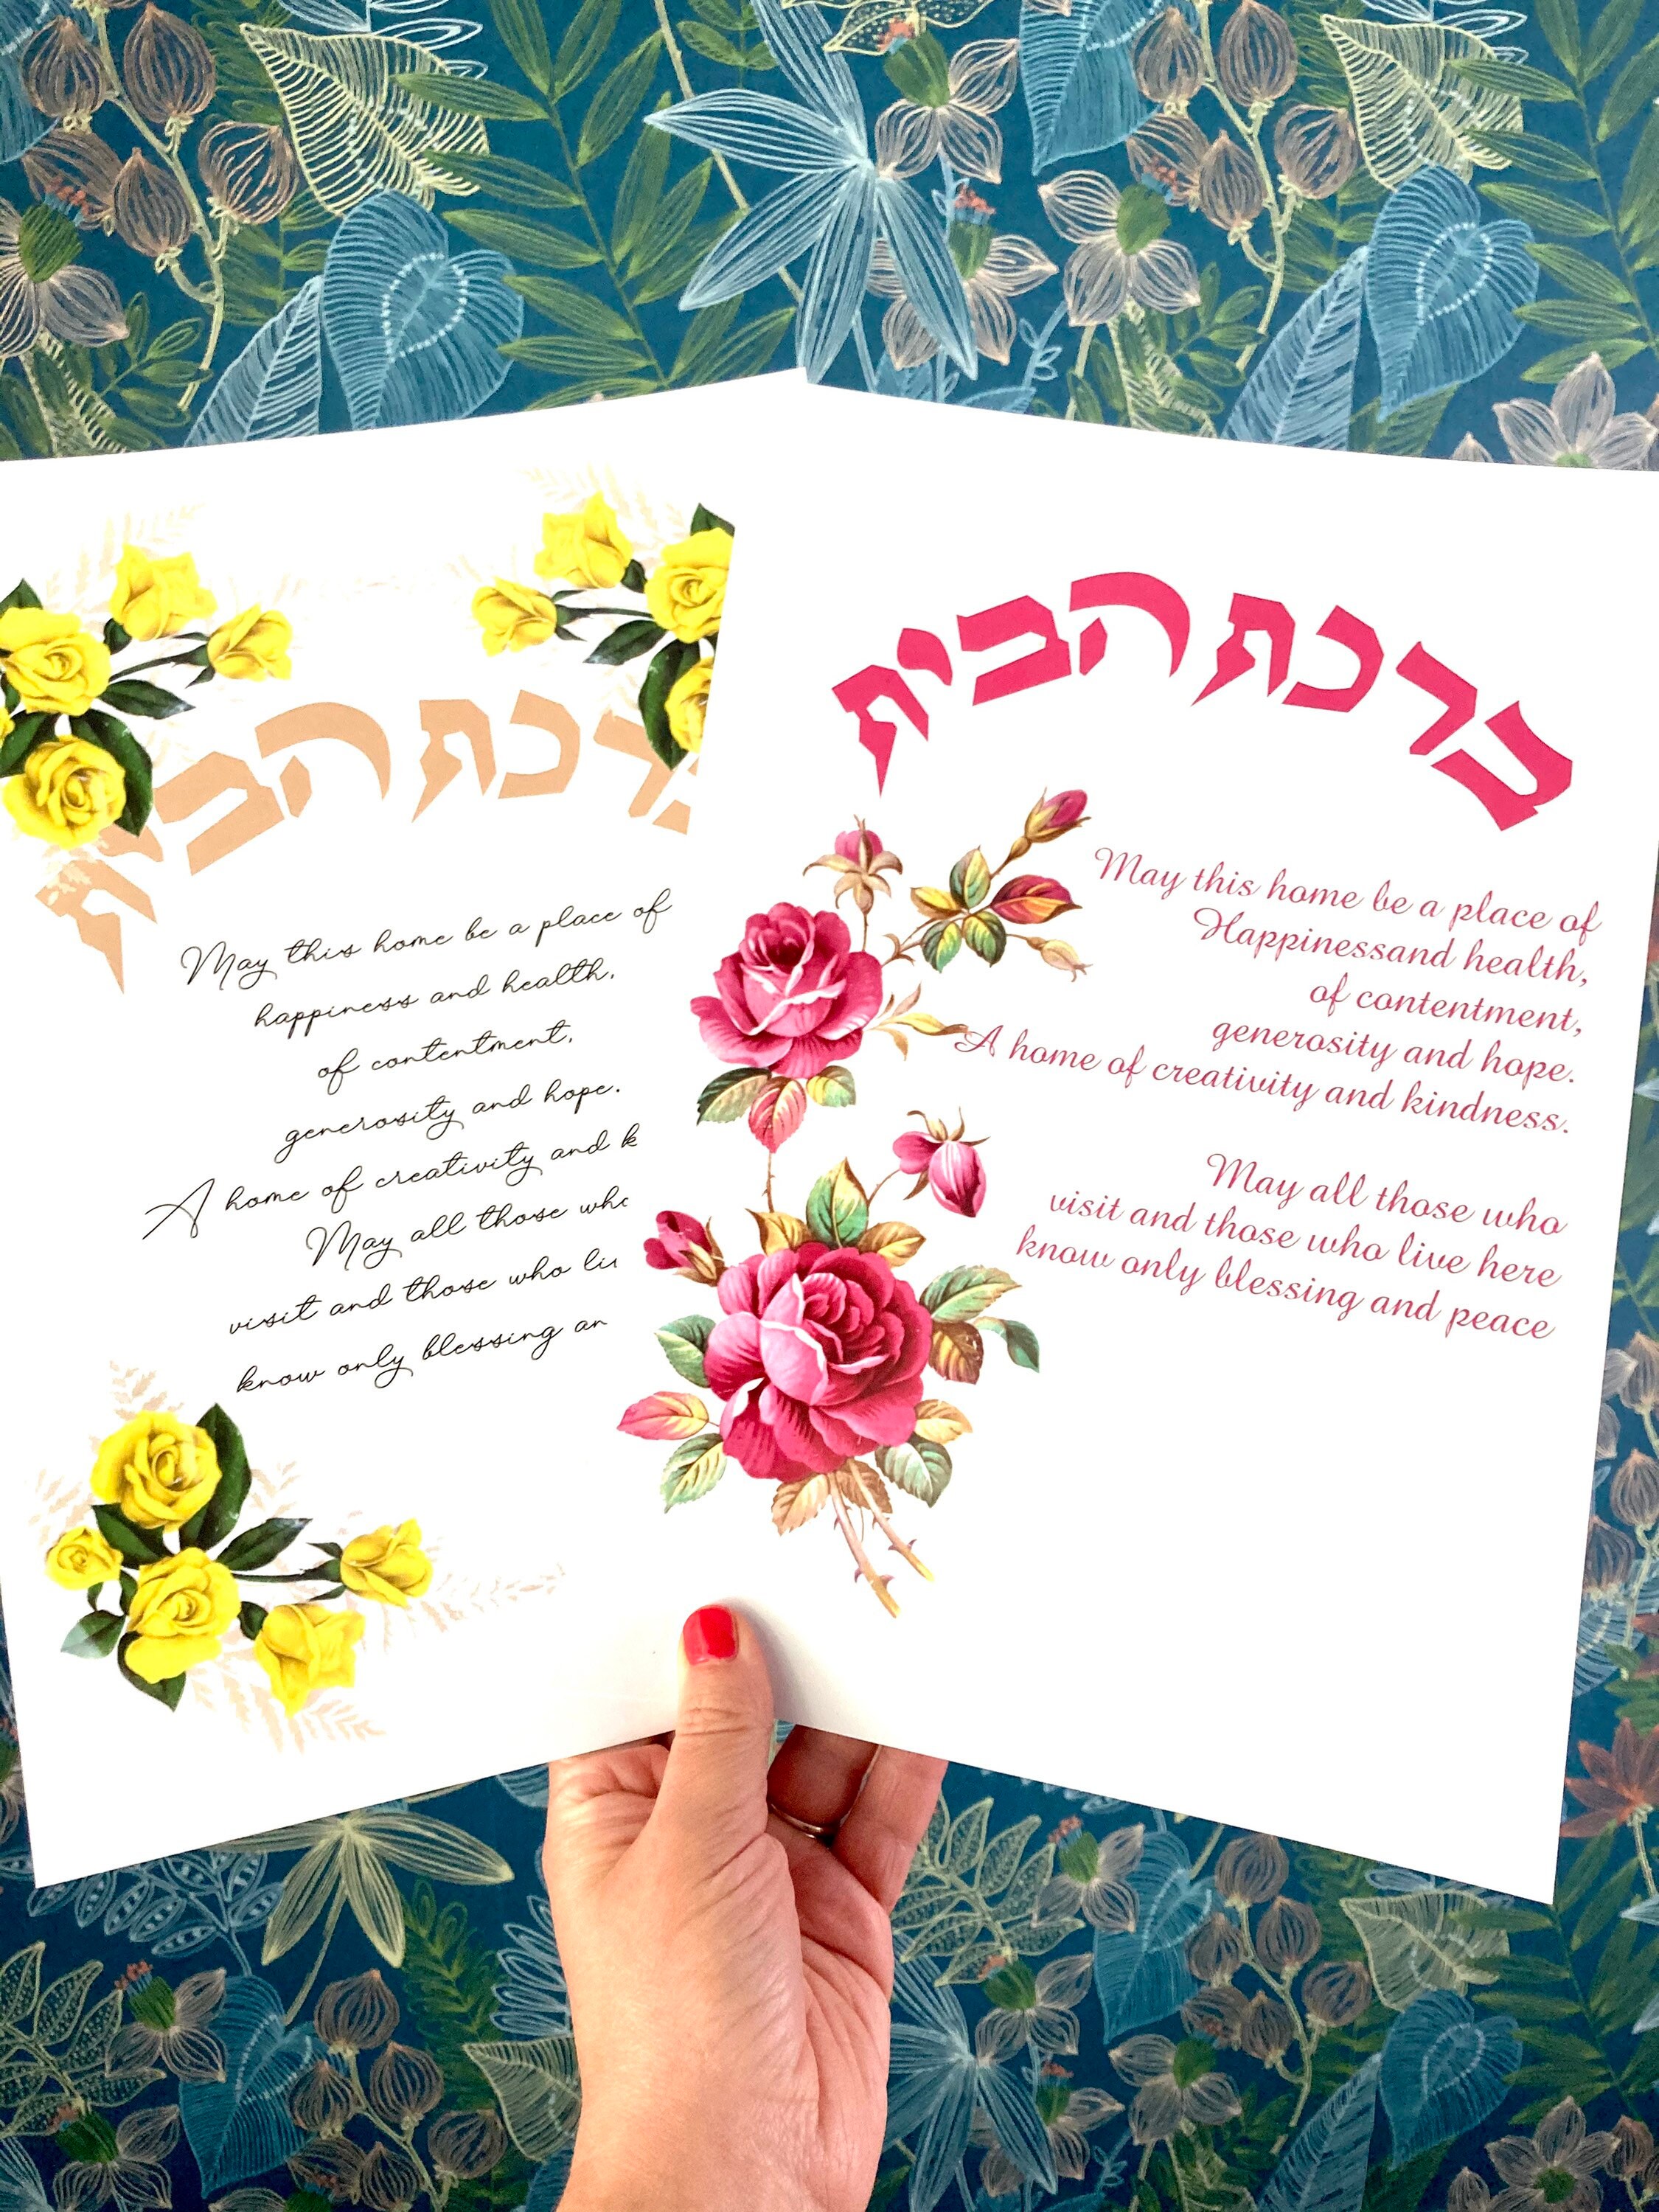 רכת הבית
May this home be a place of
happiness and health,
of contentment,
generosity and hope.
A home of creativity and k
May all those who
visit and those who li
know only blessing an
ברכת הבית
May this home be a place of
Happinessand health,
of contentment,
generosity and hope.
A home of creativity and kindness.
May all those who
visit and those who live here
know only blessing and peace